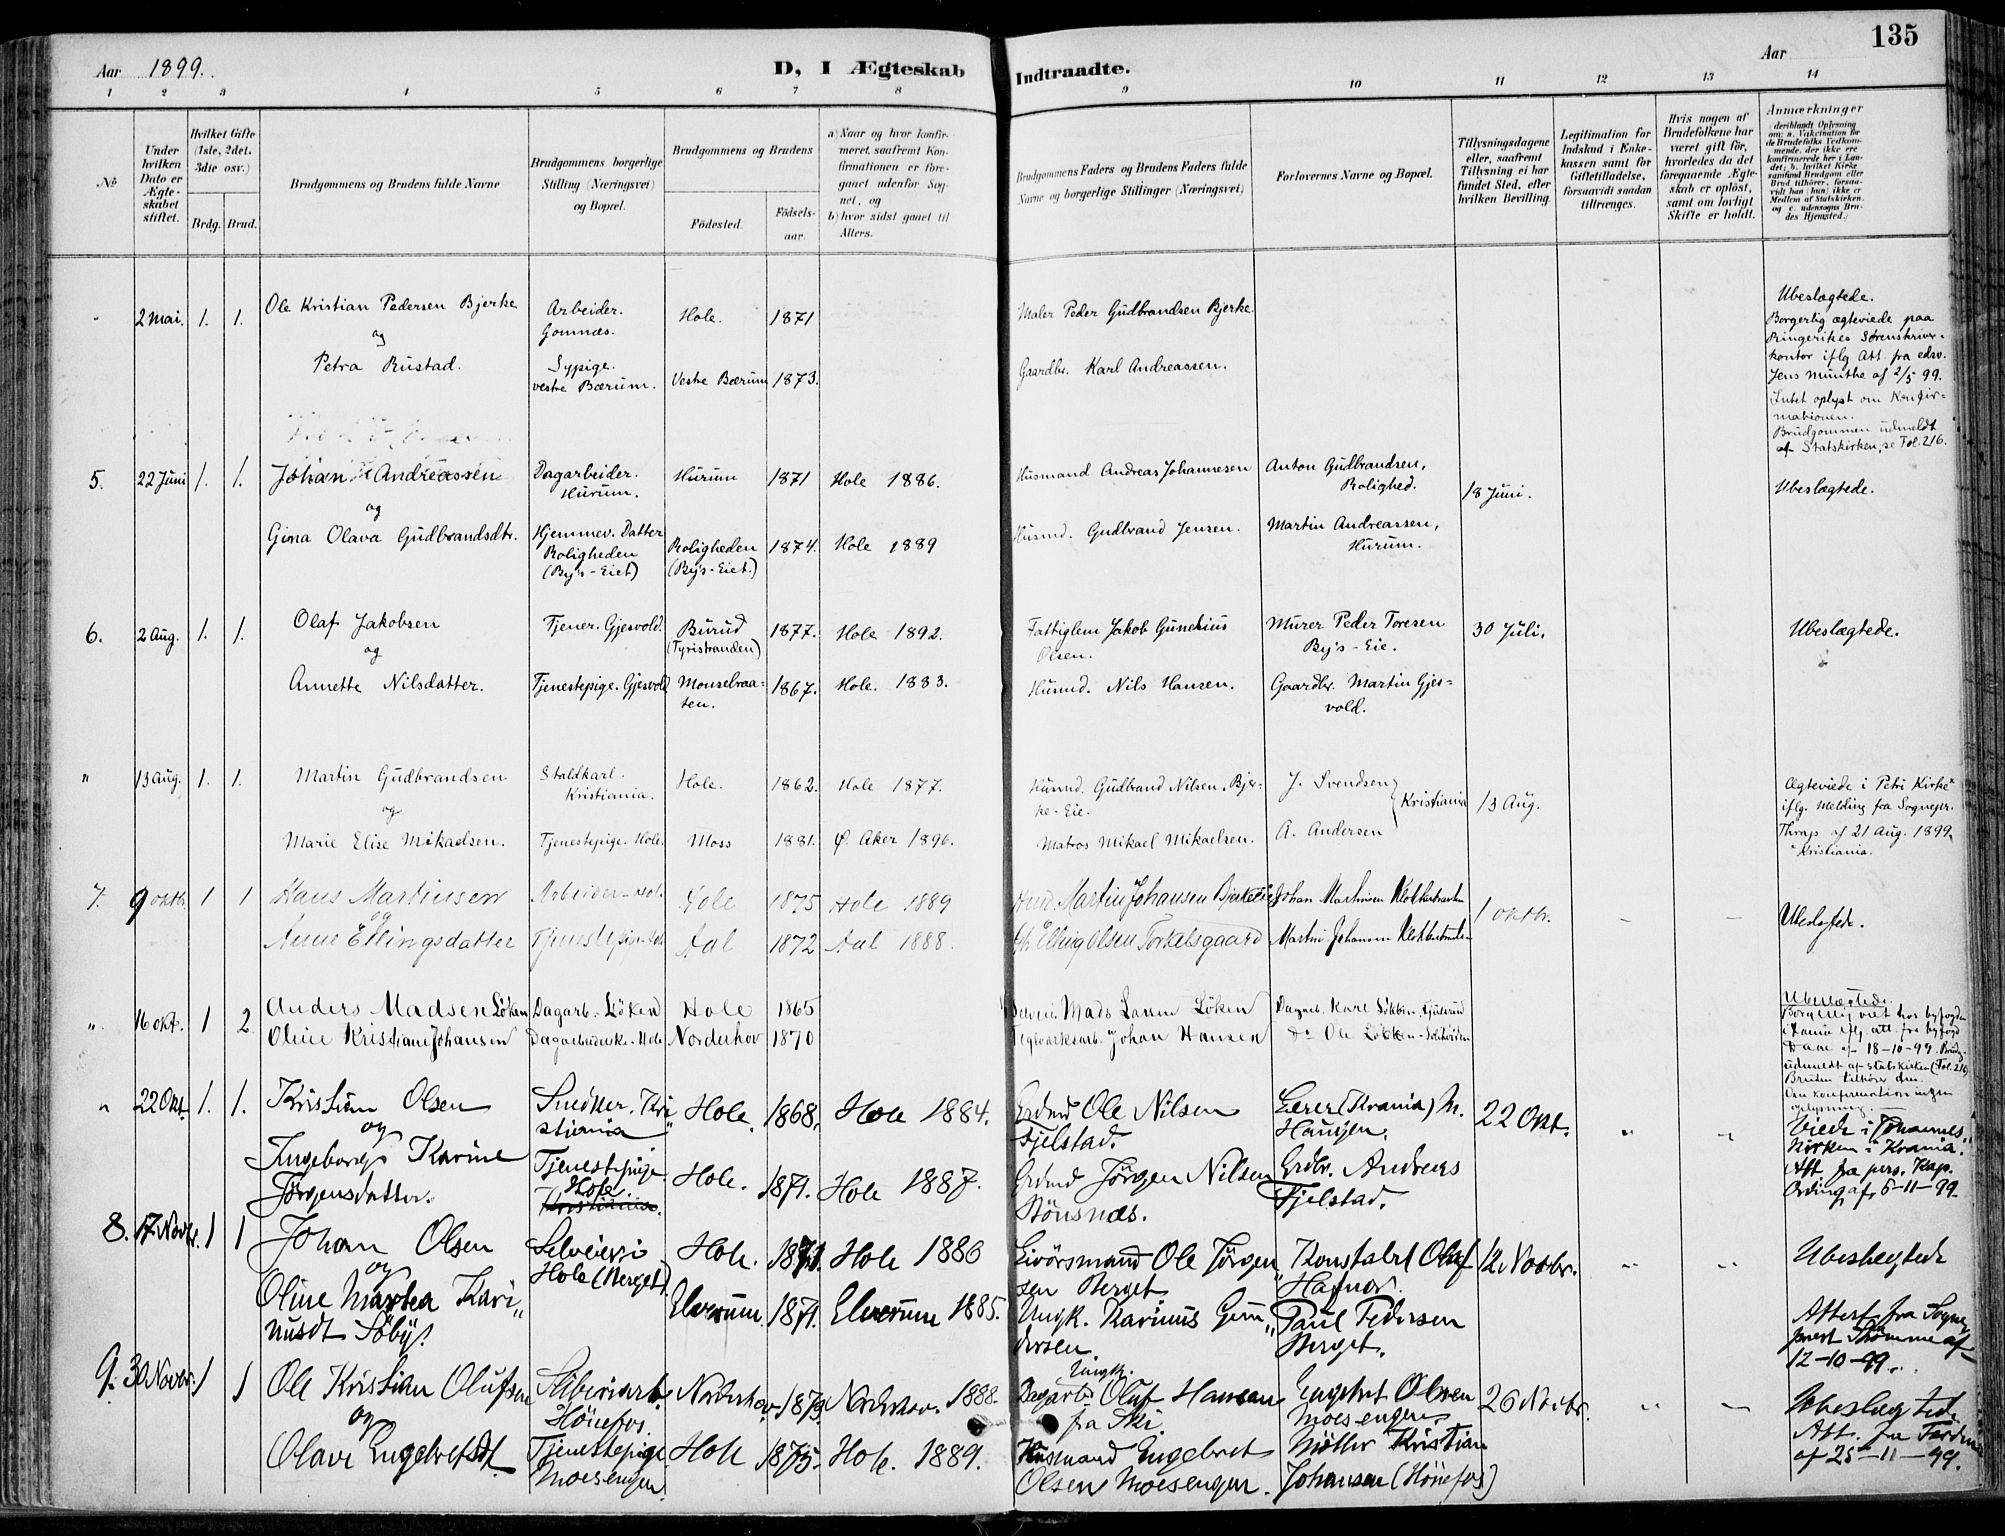 Aar 1899.
D, I Ægteskab Indtraadte.
Aar
135
1 2 3 4 5 6 7 8 9 10 11 12 13 14
No
Under hvilken Dato er Ægteskabet stiftet.
Hvilket Gifte (1ste, 2det, 3die osv.)
Brdg. Brud.
Brudgommens og Brudens fulde Navne
Brudgommens borgerlige Stilling (Næringsvei) og Bopæl.
Brudgommens og Brudens
Födested. Födselsaar.
a) Naar og hvor konfirmeret, saafremt Konfirmationen er foregaaet udenfor Sognet, og
b) hvor sidst gaaet til Alters.
Brudgommens Faders og Brudens Faders fulde Navne og borgerlige Stillinger (Næringsvei)
Forlovernes Navne og Bopæl.
Tillysningsdagene eller, saafremt Tillysning ei har fundet Sted, efter hvilken Bevilling.
Legitimation for Indskud i Enkekassen samt for Giftetilladelse, forsaavidt saadan tiltrænges.
Hvis nogen af Brudefolkene har været gift før, hvorledes da det foregaaende Ægteskab er oplöst, samt om lovligt Skifte er holdt.
Anmærkninger
2 Mai. 1. 1. Ole Kristian Pedersen Bjerke Arbeider. Gomnæs. Hole. 1871 Maler Peder Gudbrandsen Bjerke.
og
Petra Rustad. Sypige. vestre Bærum. Vestre Bærum 1873. Gaardbr. Karl Andreassen.
Ubeslægtede.
Borgerlig ægteviede paa
Ringerikes Sorenskriver-
kontor iflg Att. fra edsv.
Jens Munthe af 2/5 99.
Intet oplyst om Konfir=
mationen.
Brudgommen udmeldt
af Statskirken, se Fol. 216.
5. 22 Juni 1. 1. Johan Andreassen Dagarbeider. Hurum. Hurum 1871 Hole 1886. Husmand Andreas Johannesen Anton Gudbrandsen, Rolighed. 18 Juni. Ubeslægtede.
og
Gina Olava Gudbrandsdtr. Hjemmev. Datter Roligheden (By's-Eiet) Roligheden (By's-Eiet.) 1874. Hole 1889 Husmd. Gudbrand Jensen. Martin Andreassen, Hurum.
6. 2 Aug. 1. 1. Olaf Jakobsen Tjener. Gjesvold. Burud (Tyristranden) 1877. Hole 1892. Fattiglem Jakob Gunerius Olsen. Murer Peder Toresen By's-Eie. 30 Juli. Ubeslægtede.
og
Annette Nilsdatter. Tjenestepige. Gjesvold Monselvaa=sen. 1867. Hole. 1883. Husmd. Nils Hansen. Gaardbr. Martin Gjes=vold.
" 13 Aug. 1. 1. Martin Gudbrandsen Staldkarl. Kristiania. Hole. 1862. Hole 1877. Husmd. Gudbrand Nilsen. Bjer-ke-Eie. J. Svendsen Kristiania 13 Aug.
og
Marie Elise Mikaelsen. Tjenestepige. Hole. Moss 1881. Ø. Aker 1896. Matros Mikael Mikaelsen. A. Andersen
Ægteviede i Petri Kirke
iflg. Melding fra Sognepr.
Thrap af 21 Aug. 1899.
Kristiania.
7. 9 oktb. 1 1 Hans Martinsen Arbeider-Hole Hole 1875 Hole 1889 Husmd. Martin Johansen Bjerkeeie Johan Martinsen 1 oktb. - - Ubeslgtede.
og
Anne Ellingsdatter Tjenestepige-Hole Aal 1872 Aal 1888. Elling Olsen Torkelsgaard Martin Johansen
" 16 okt. 1 2 Anders Madsen Löken Dagarb. Löken Hole 1865 Mads Larsen Löken
Oline Kristiane Johansen Norderhov 1870 Johan Hansen
Ubeslægtede.
" 22 Okt. 1. 1. Kristian Olsen Snedker, Kristiania Hole. 1868. Hole 1884. Grdmd Ole Nilsen Fjelstad. Lerer (Krania) M. Haugen. 22 Okt. " "
og
Ingeborg Karine Jörgensdatter. Tjenestepige Hole. Kristiania. Hole. 1871. Hole 1887. Grdmd Jörgen Nilsen Stönsnæs. Grdbr. Andreas Fjelstad.
Viede i Johannes
kirken i Krania.
Att. fra pers. Kap.
Ording af 6-11-99.
8. 17. Novbr. 1 1 Johan Olsen Selveier i Hole (Berget). Hole. 1871. Hole 1886 Livörsmand Ole Jörgen"sen Berget Konstabel Olaf Hafnor. 12 Novbr. " " Ubeslægtede
og
Oline Martea Kari"nusdt Söby. Elverum. 1871. Elverum 1885. Ungk. Karinus Gun"dersen. Paul Pedersen Berget.
Attest fra Sogne
prest Strömme af
12-10-99.
9. 30 Novbr. 1 1 Ole Kristian Olufsen Sliberiarb. Hönefos. Norderhov 1873. Norderhov. 1888. Ungk. Dagarbr Oluf Hansen fra Ski. Engebret Olsen Moesengen. 26 Novbr. " " Ubeslægtede
og
Olave Engebretsdt. Tjenestepige Moesengen. Hole 1875. Hole. 1889. Husmand Engebret Olsen Moesengen. Möller Kristian Johansen (Hönefos)
Att. fra
af 25-11-99.